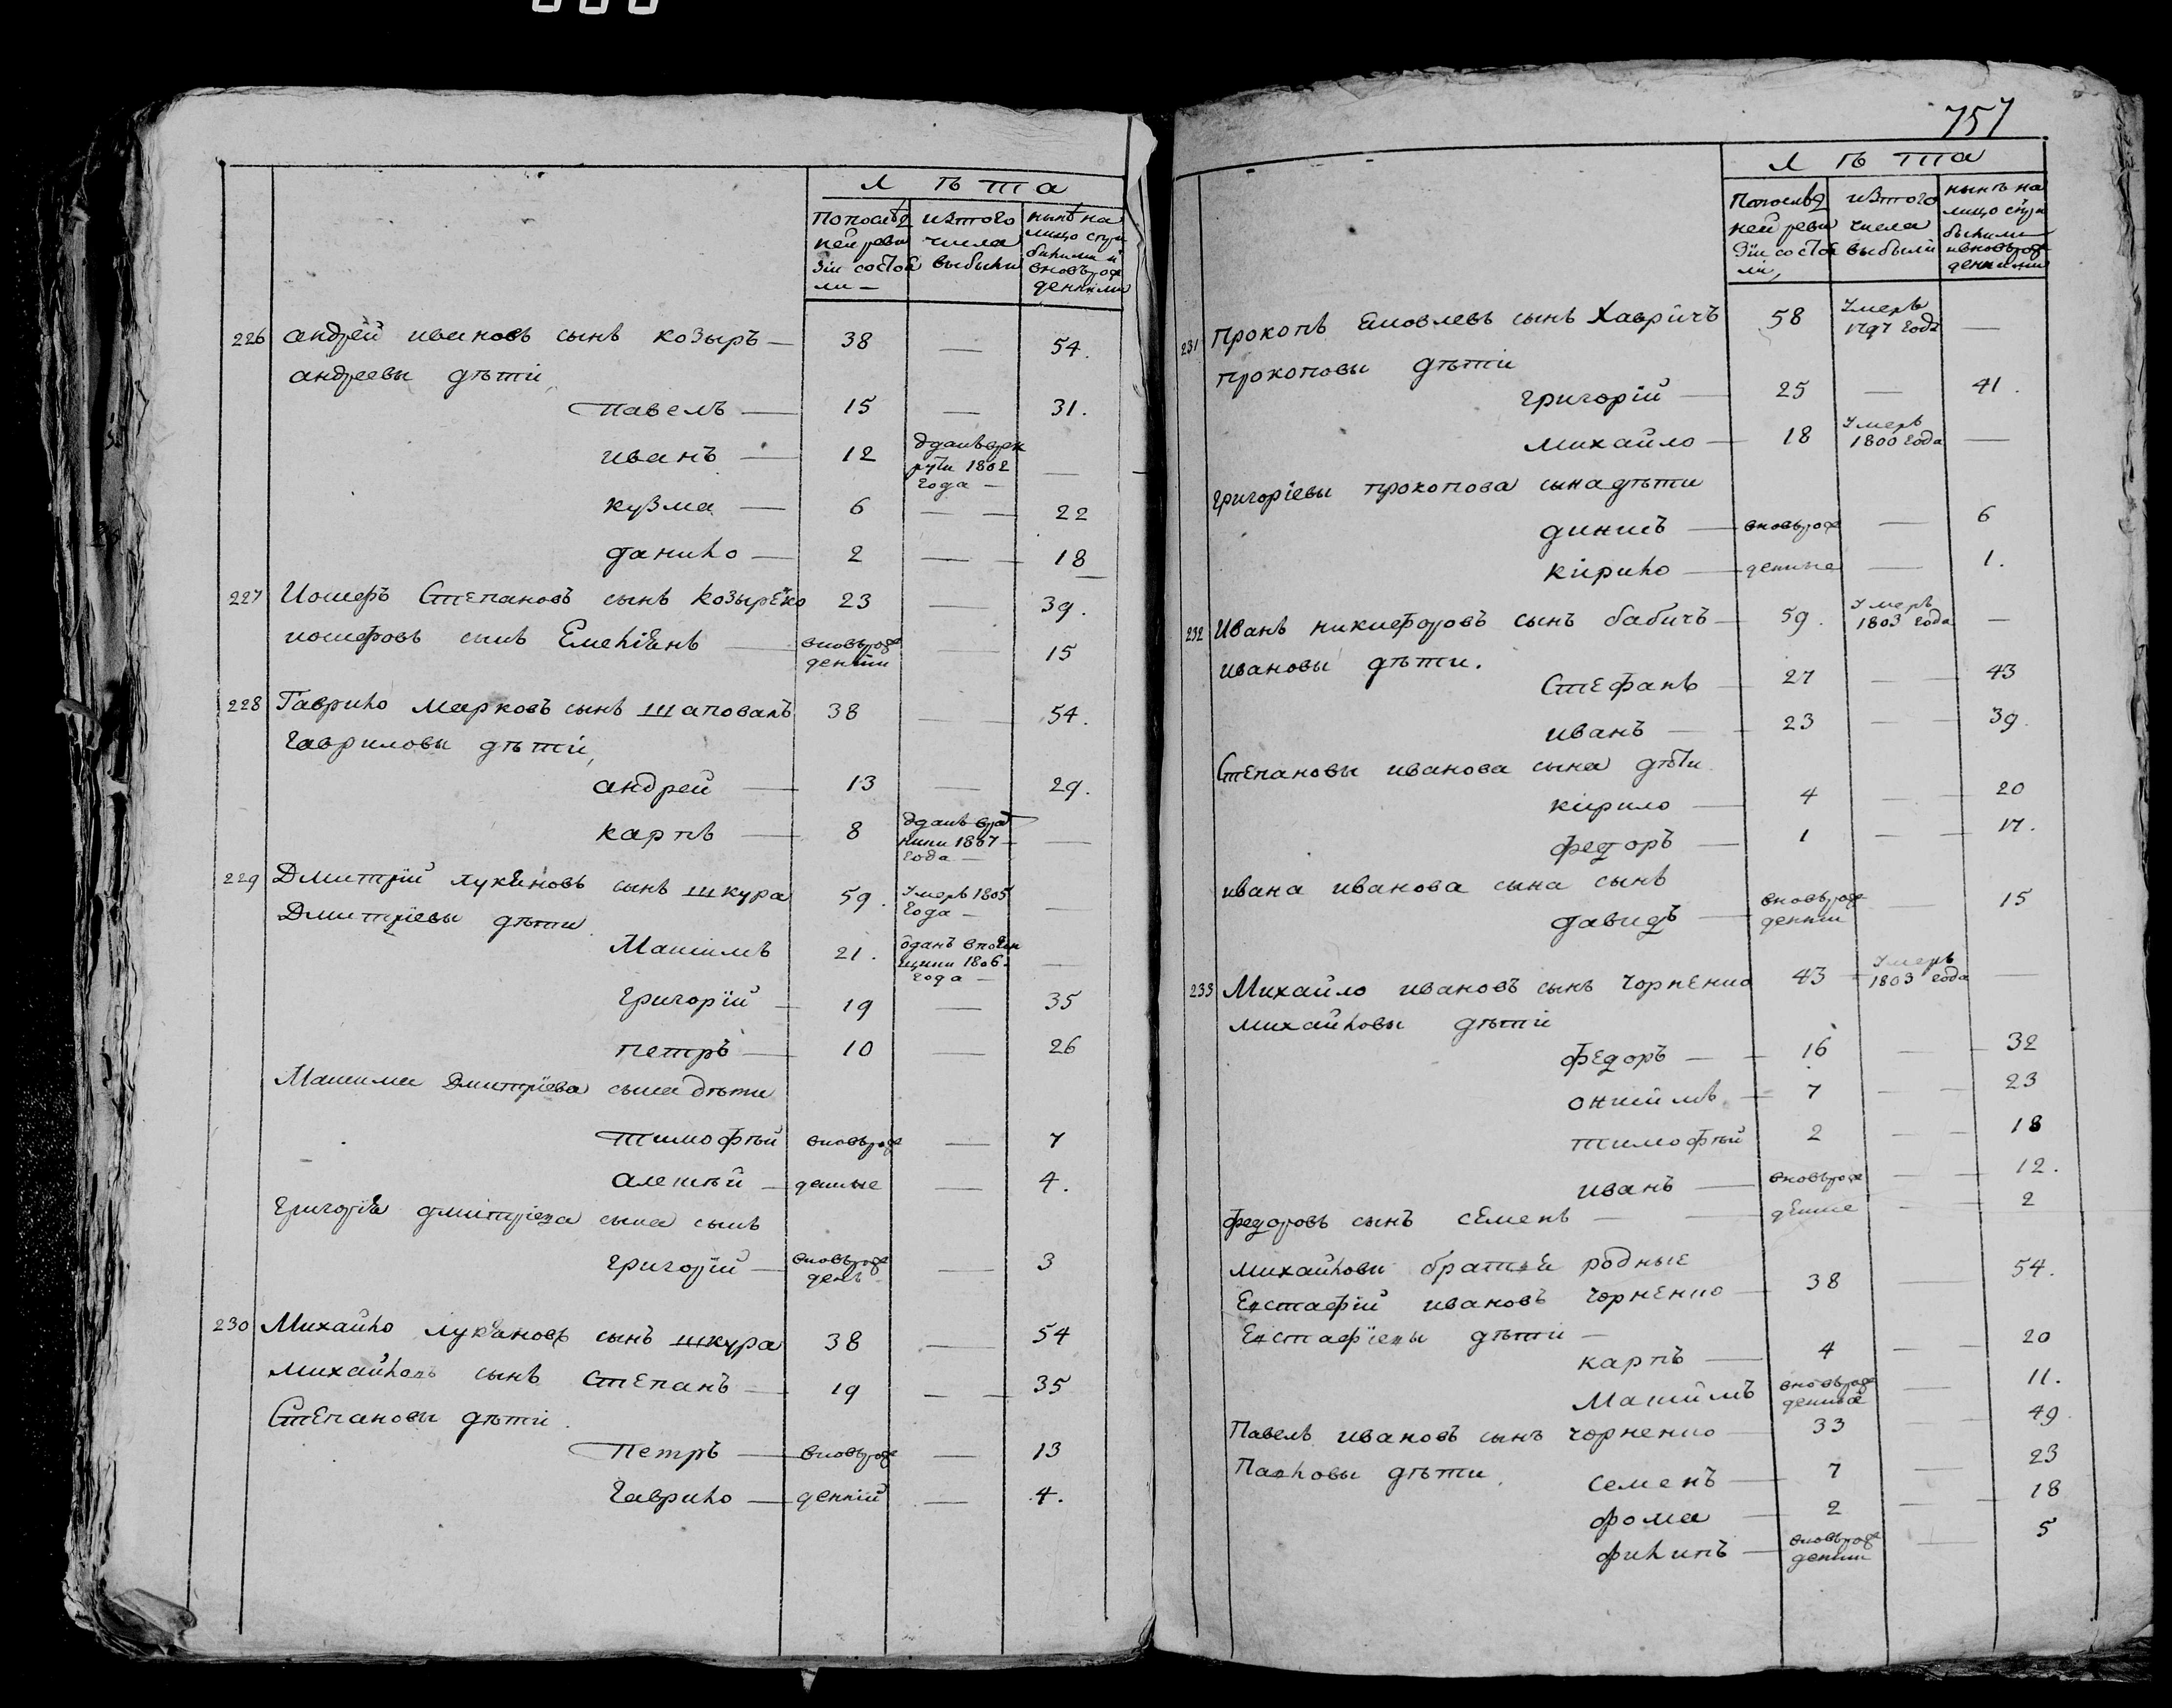 Л ѣ т а
По послѣд ней реви зіи состоя ли —
изъ того числа выбыли
нынѣ на лицо
226 андрей ивановъ сынъ козыръ — 38 — 54.
андреевы дѣти,
павелъ — 15 — 31.
иванъ — 12 года — —
кузма — 6 — — 22
данило — 2 — — 18
227 Иосифъ Степановъ сынъ козырЕко 23 — 39.
иосифовъ сынъ Емеліянъ — вновьрож деный — 15
228 Гаврило марковъ сынъ шаповалъ 38 — 54.
Гавриловы дѣти,
андрей — 13 — 29.
карпъ — 8 года — —
229 Дмитрій лукяновъ сынъ шкура 59. Умеръ 1805 года — —
Дмитріевы дѣти.
Максимъ 21. 1806. года — —
Григорій — 19 — 35
петръ — 10 — 26
Максима Дмитріева сына дѣти
тимофѣй вновьрож — 7
алексѣй — денные — 4.
Григорія дмитріева сына сынъ
григорій — вновьрож денъ — 3
230 Михайло лукяновъ сынъ шкура 38 — 54
михайловъ сынъ Степанъ — 19 — — 35
Степановы дѣти.
петръ — вновьрож — 13
гаврило — денній — 4.
757
Л ѣ т а
По послѣд ней реви зіи состоя ли,
изъ того числа выбыли
нынѣ на лицо
231 Прокопъ Яковлевъ сынъ Хавричъ 58 Умеръ 1797 года —
прокоповы дѣти
григорій — 25 — 41.
михайло — 18 Умеръ 1800 года —
григоріевы прокопова сына дѣти
динисъ — вновьрож — 6
кирило — денные — 1.
232 Иванъ никифоровъ сынъ бабичъ — 59. Умеръ 1803 года —
ивановы дѣти.
Стефанъ — 27 — — 43
иванъ — 23 — — 39.
Степановы иванова сына дѣти.
кирило — 4 — — 20
федоръ — 1 — — 17.
ивана иванова сына сынъ
давидъ — вновьрож денни — 15
233 Михайло ивановъ сынъ чорненко 43 Умеръ 1803 года —
михайловы дѣти
федоръ — 16 — — 32
7 — — 23
тимофѣй 2 — — 18
иванъ — вновьрож — — 12.
федоровъ сынъ семенъ — — денные — 2
михайловы братья родные
Евстафій ивановъ чорненко — 38 — 54.
Евстафіевы дѣти —
карпъ — 4 — — 20
Максимъ вновьрож денные — 11.
Павелъ ивановъ сынъ чорненко — 33 — 49.
Павловы дѣти.
семенъ — 7 — 23
фома — 2 — — 18
филипъ — вновьрож денни — 5